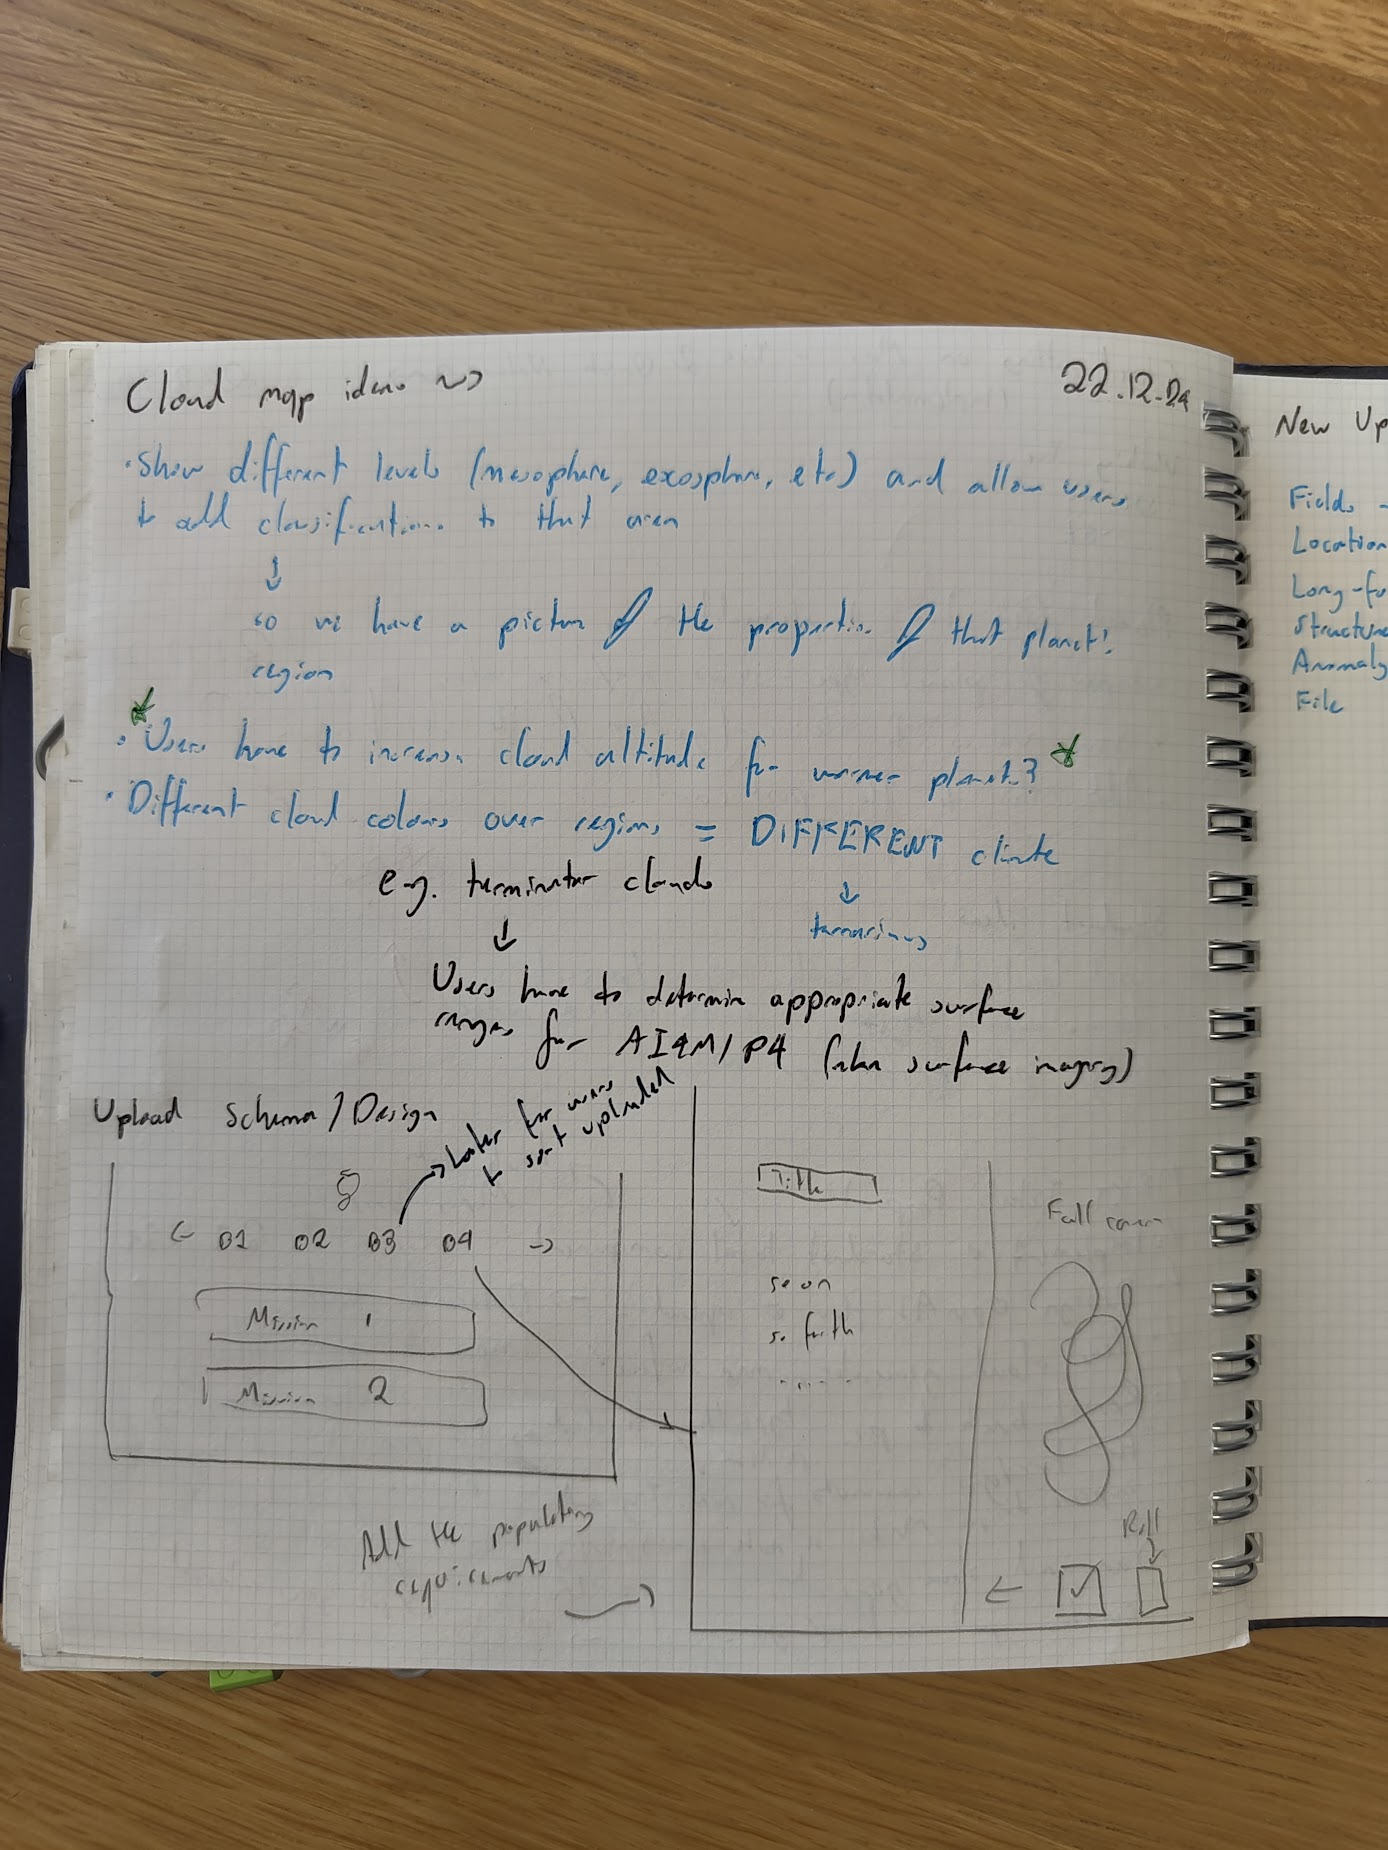 Cloud map ideas ~>
22.12.24
• Show different levels (mesosphere, exosphere, etc) and allow users
to add classifications to that area
↓
so we have a picture of the properties of that planet!
region
• Users have to increase cloud altitude for warmer planets?
• Different cloud colours over regions = DIFFERENT climate
e.g. terminator clouds
↓
↓
Users have to determine appropriate surface
ranges for AI4M/P4 (when surface imagery)
Upload Schema/Design
Later for users
to sort uploaded
← 01 02 03 04 →
Mission 1
Mission 2
Add the populating
requirements
Title
so on
so forth
......
Full
←
New Up
Fields -
Location
Long-fo
Structure
Anomaly
File